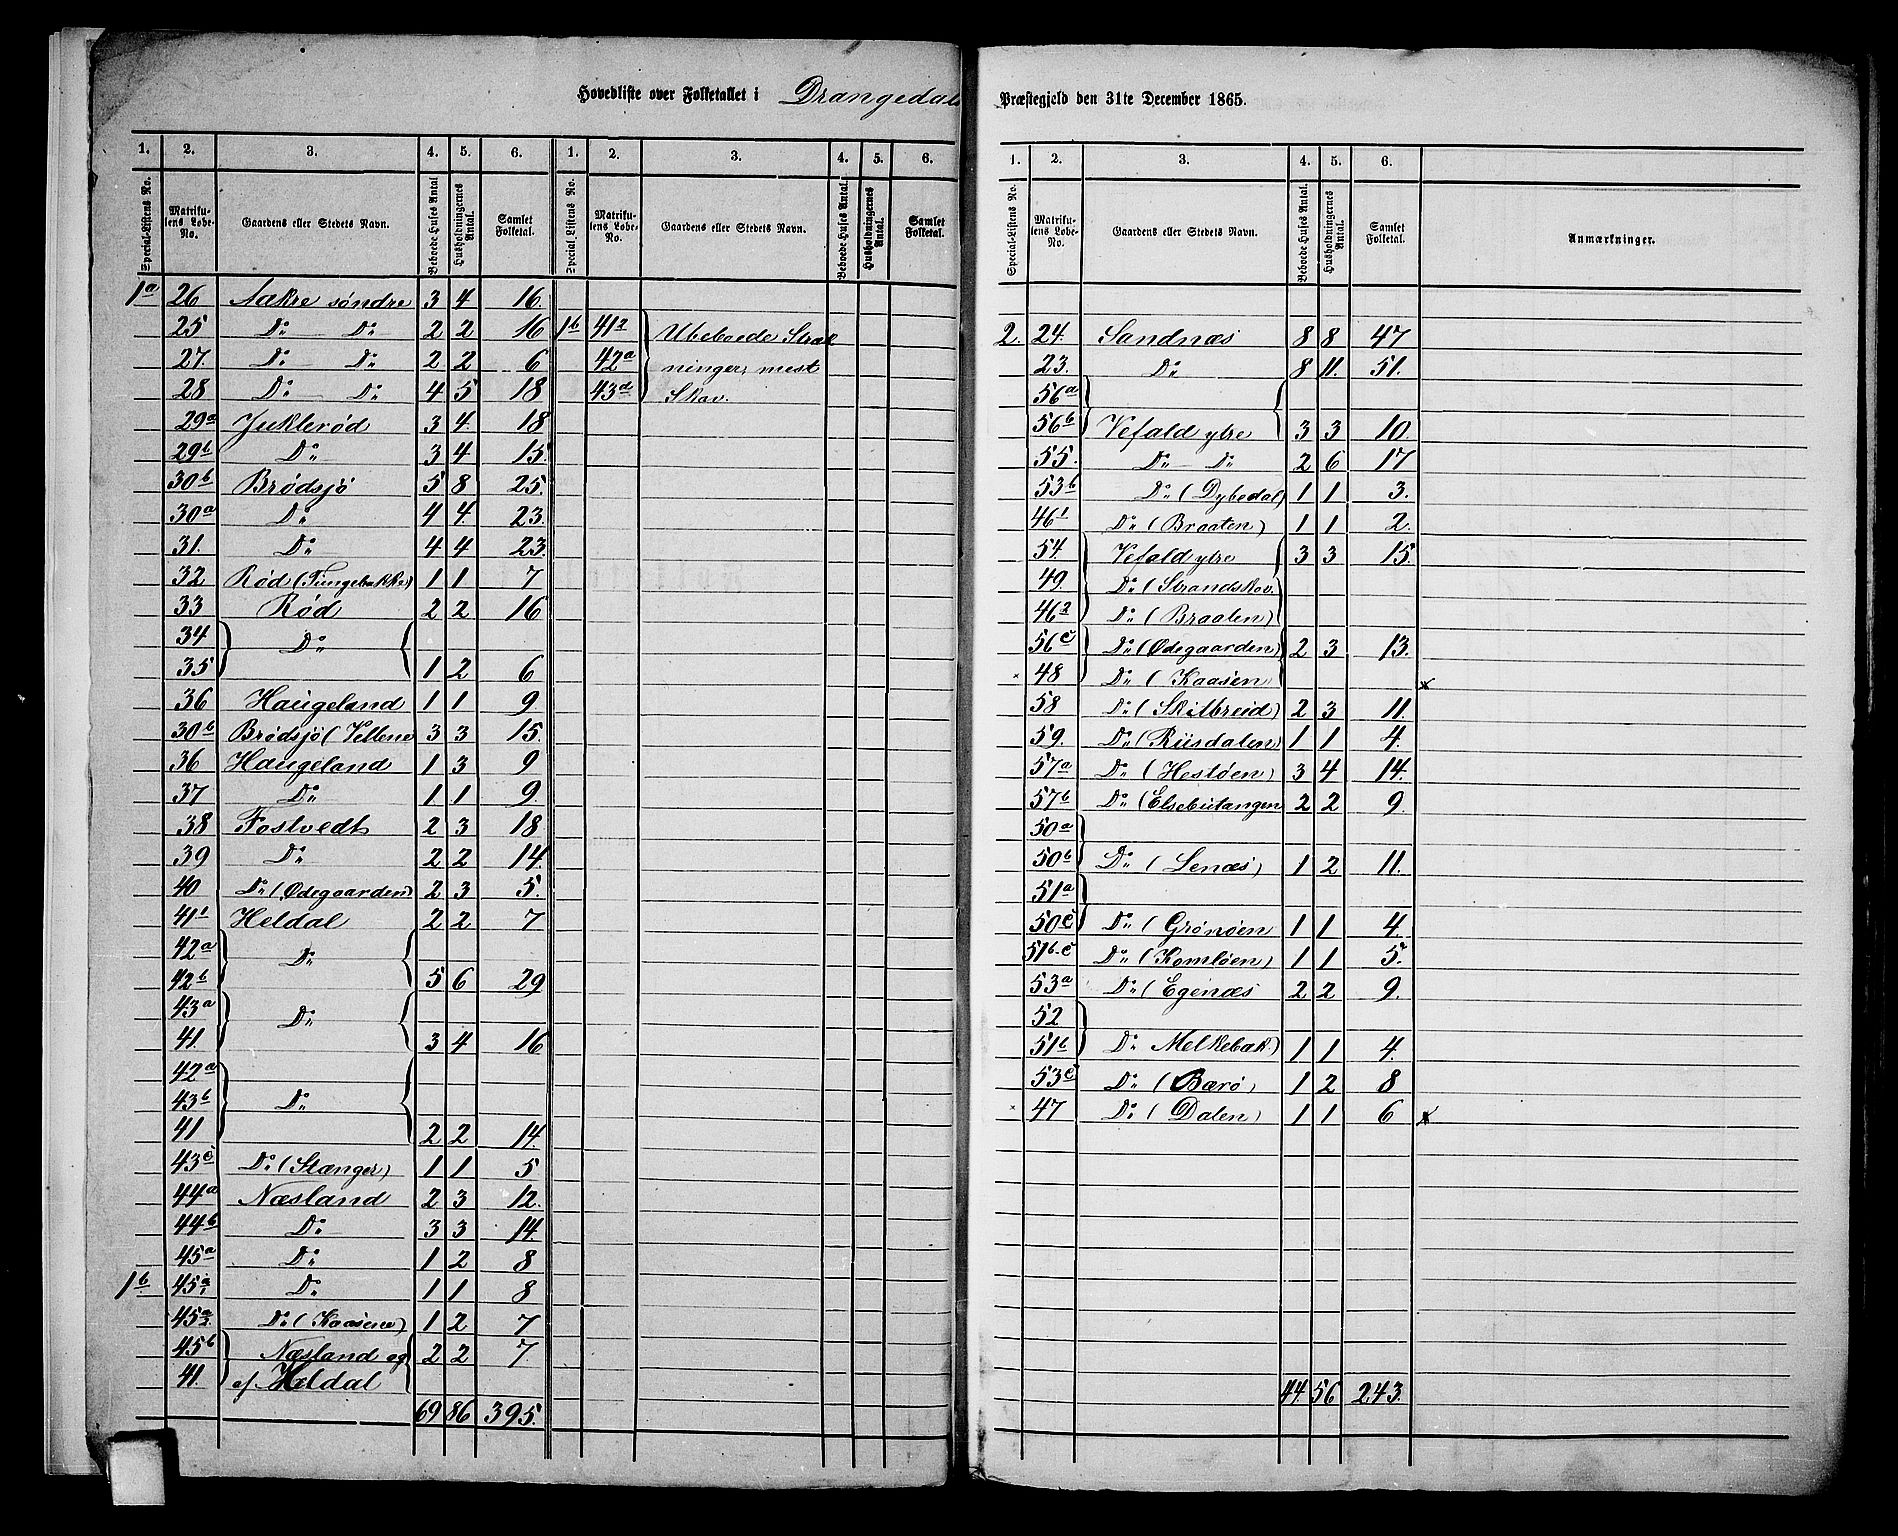 Hovedliste over Folketallet i Drangedals
1. 2. 3. 4. 5. 6. 1. 2. 3. 4. 5. 6.
Special-Listens No. Matrikulens Løbe-No. Gaardens eller Stedets Navn. Beboede Huses Antal Husholdningernes Antal Samlet Folketal. Special-Listens No. Matrikulens Løbe-No. Gaardens eller Stedets Navn. Beboede Huses Antal. Husholdningernes Antal. Samlet Folketal.
1a 26 Aakre søndre 3 4 16.
25 Do Do 2 2 16 1b 41 2 Ubeboede Stræk
27. Do Do 2 2 6 42a ninger, mest
28 Do Do 4 5 18 43d Skov.
29a Juklerød 3 4. 18
29b Do 3 4 15.
30b Brødsjø 5 8 25.
30a Do 4 4. 23.
31. Do 4 4 23.
32 Rød (Tungebakke) 1 1 7
33 Rød 2 2 16
34 Do
35 1 2 6
36 Haugeland 1 1 9
30b Brødsjø (Vellene 3 3 15.
36 Haugeland 1 3 9
37 Do 1 1 9.
38 Fostvedt 2 3 18
39 Do 2 2 14.
40 Do (Ødegaarden) 2 3 5.
41 1 Heldal 2 2 7
42a Do
42b 5 6 29
43a Do
41. 3 4 16
42a
43b Do
41 2 2 14.
43c Do (Stanger) 1 1 5
44a Næsland 2 3 12.
44b Do 3 3 14
45a Do 1 2 8
1b 45a1 Do 1 1 8
45a2 Do (Kaasene) 1 2 7
45b Næsland og 2 2 7.
41. af Heldal
69 86 395.
Præstegjeld den 31te December 1865.
1. 2. 3. 4. 5. 6.
Special-Listens No. Matrikulens Løbe-No. Gaardens eller Stedets Navn. Beboede Huses Antal. Husholdningernes Antal. Samlet Folketal. Anmærkninger.
2. 24. Sandnæs 8 8 47
23. Do 8 11. 51.
56a
56b Vefald ytre 3 3 10.
55. Do Do 2 6 17
53b Do (Dybedal) 1 1 3.
46 1 Do (Braaten) 1 1 2.
54. Vefald ytre 3 3 15.
49. Do (Strandskov.
46 2 Do (Braaten)
56c Do (Ødegaarden) 2 3 13.
× 48 Do (Kaasen) ×
58 Do (Skilbreid) 2 3 11.
59. Do (Riisdalen) 1 1 4.
57a Do (Hestøen) 3 4 14.
57b Do (Elsebutangen 2 2 9.
50a
50b Do (Lenæs) 1 2 11.
51a
50c Do (Grønøen 1 1 4.
51b.c Do (Komløen) 1 1 5.
53a Do (Egenæs 2 2 9.
52
51b Do Melkebak.) 1 1 4.
53c Do (Barø) 1 2 8
× 47 Do (Dalen) 1 1 6 ×
44. 56 243.